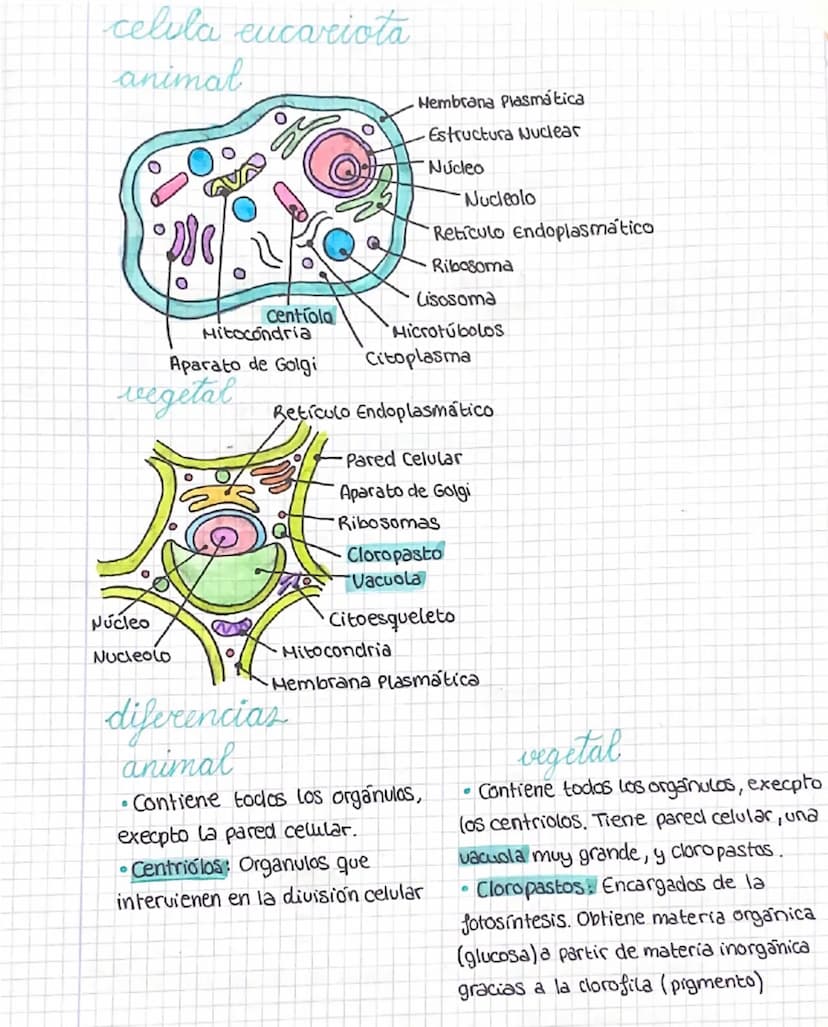 celula eucariota
animal
Membrana Plasmática
Estructura Nuclear
Núcleo
Nucleolo
Retículo Endoplasmático
Ribosoma
Lisosoma
Centíolo
Mitocóndria
Microtúbolos
Aparato de Golgi
Citoplasma
vegetal
Retículo Endoplasmático
Pared Celular
Aparato de Golgi
Ribosomas
Cloropasto
Vacuola
Núcleo
Citoesqueleto
Nucleolo
Mitocondria
Membrana Plasmática
diferencias
animal
• Contiene todos los orgánulos,
execpto la pared celular.
• Centriólos: Organulos que
intervienen en la división celular
vegetal
• Contiene todos los orgánulos, execpto
los centriolos. Tiene pared celular, una
vacuola muy grande, y cloropastos.
• Cloropastos: Encargados de la
fotosíntesis. Obtiene materia orgánica
(glucosa) a partir de materia inorgánica
gracias a la clorofila (pigmento)